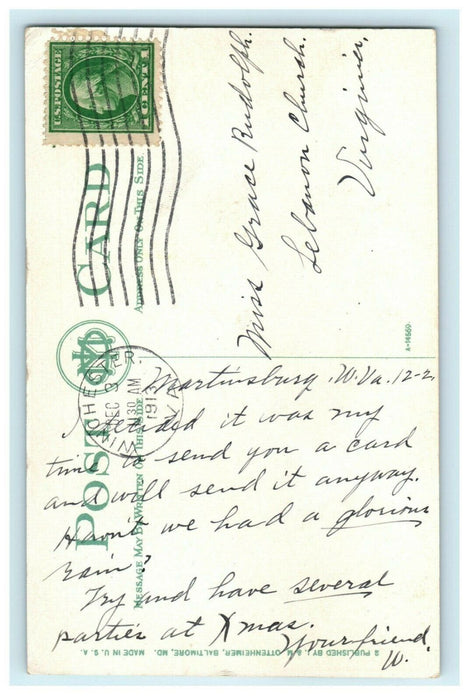 U.S. POSTAGE
1 CENT 1
POST CARD
ADDRESS ONLY ON THIS SIDE
MESSAGE MAY BE WRITTEN ON THIS SIDE
WINCHESTER
DEC 3
30 AM
191
VA.
Miss Grace Rudolph.
Lebanon Church.
Virginia,
A-14569
Martinsburg, W. Va. 12-2,
I decided it was my
time to send you a card
and will send it anyway.
Havn't we had a glorious
rain?
Try and have several
parties at Xmas.
Your friend,
W.
PUBLISHED BY I. & M. OTTENHEIMER, BALTIMORE, MD. MADE IN U. S. A.